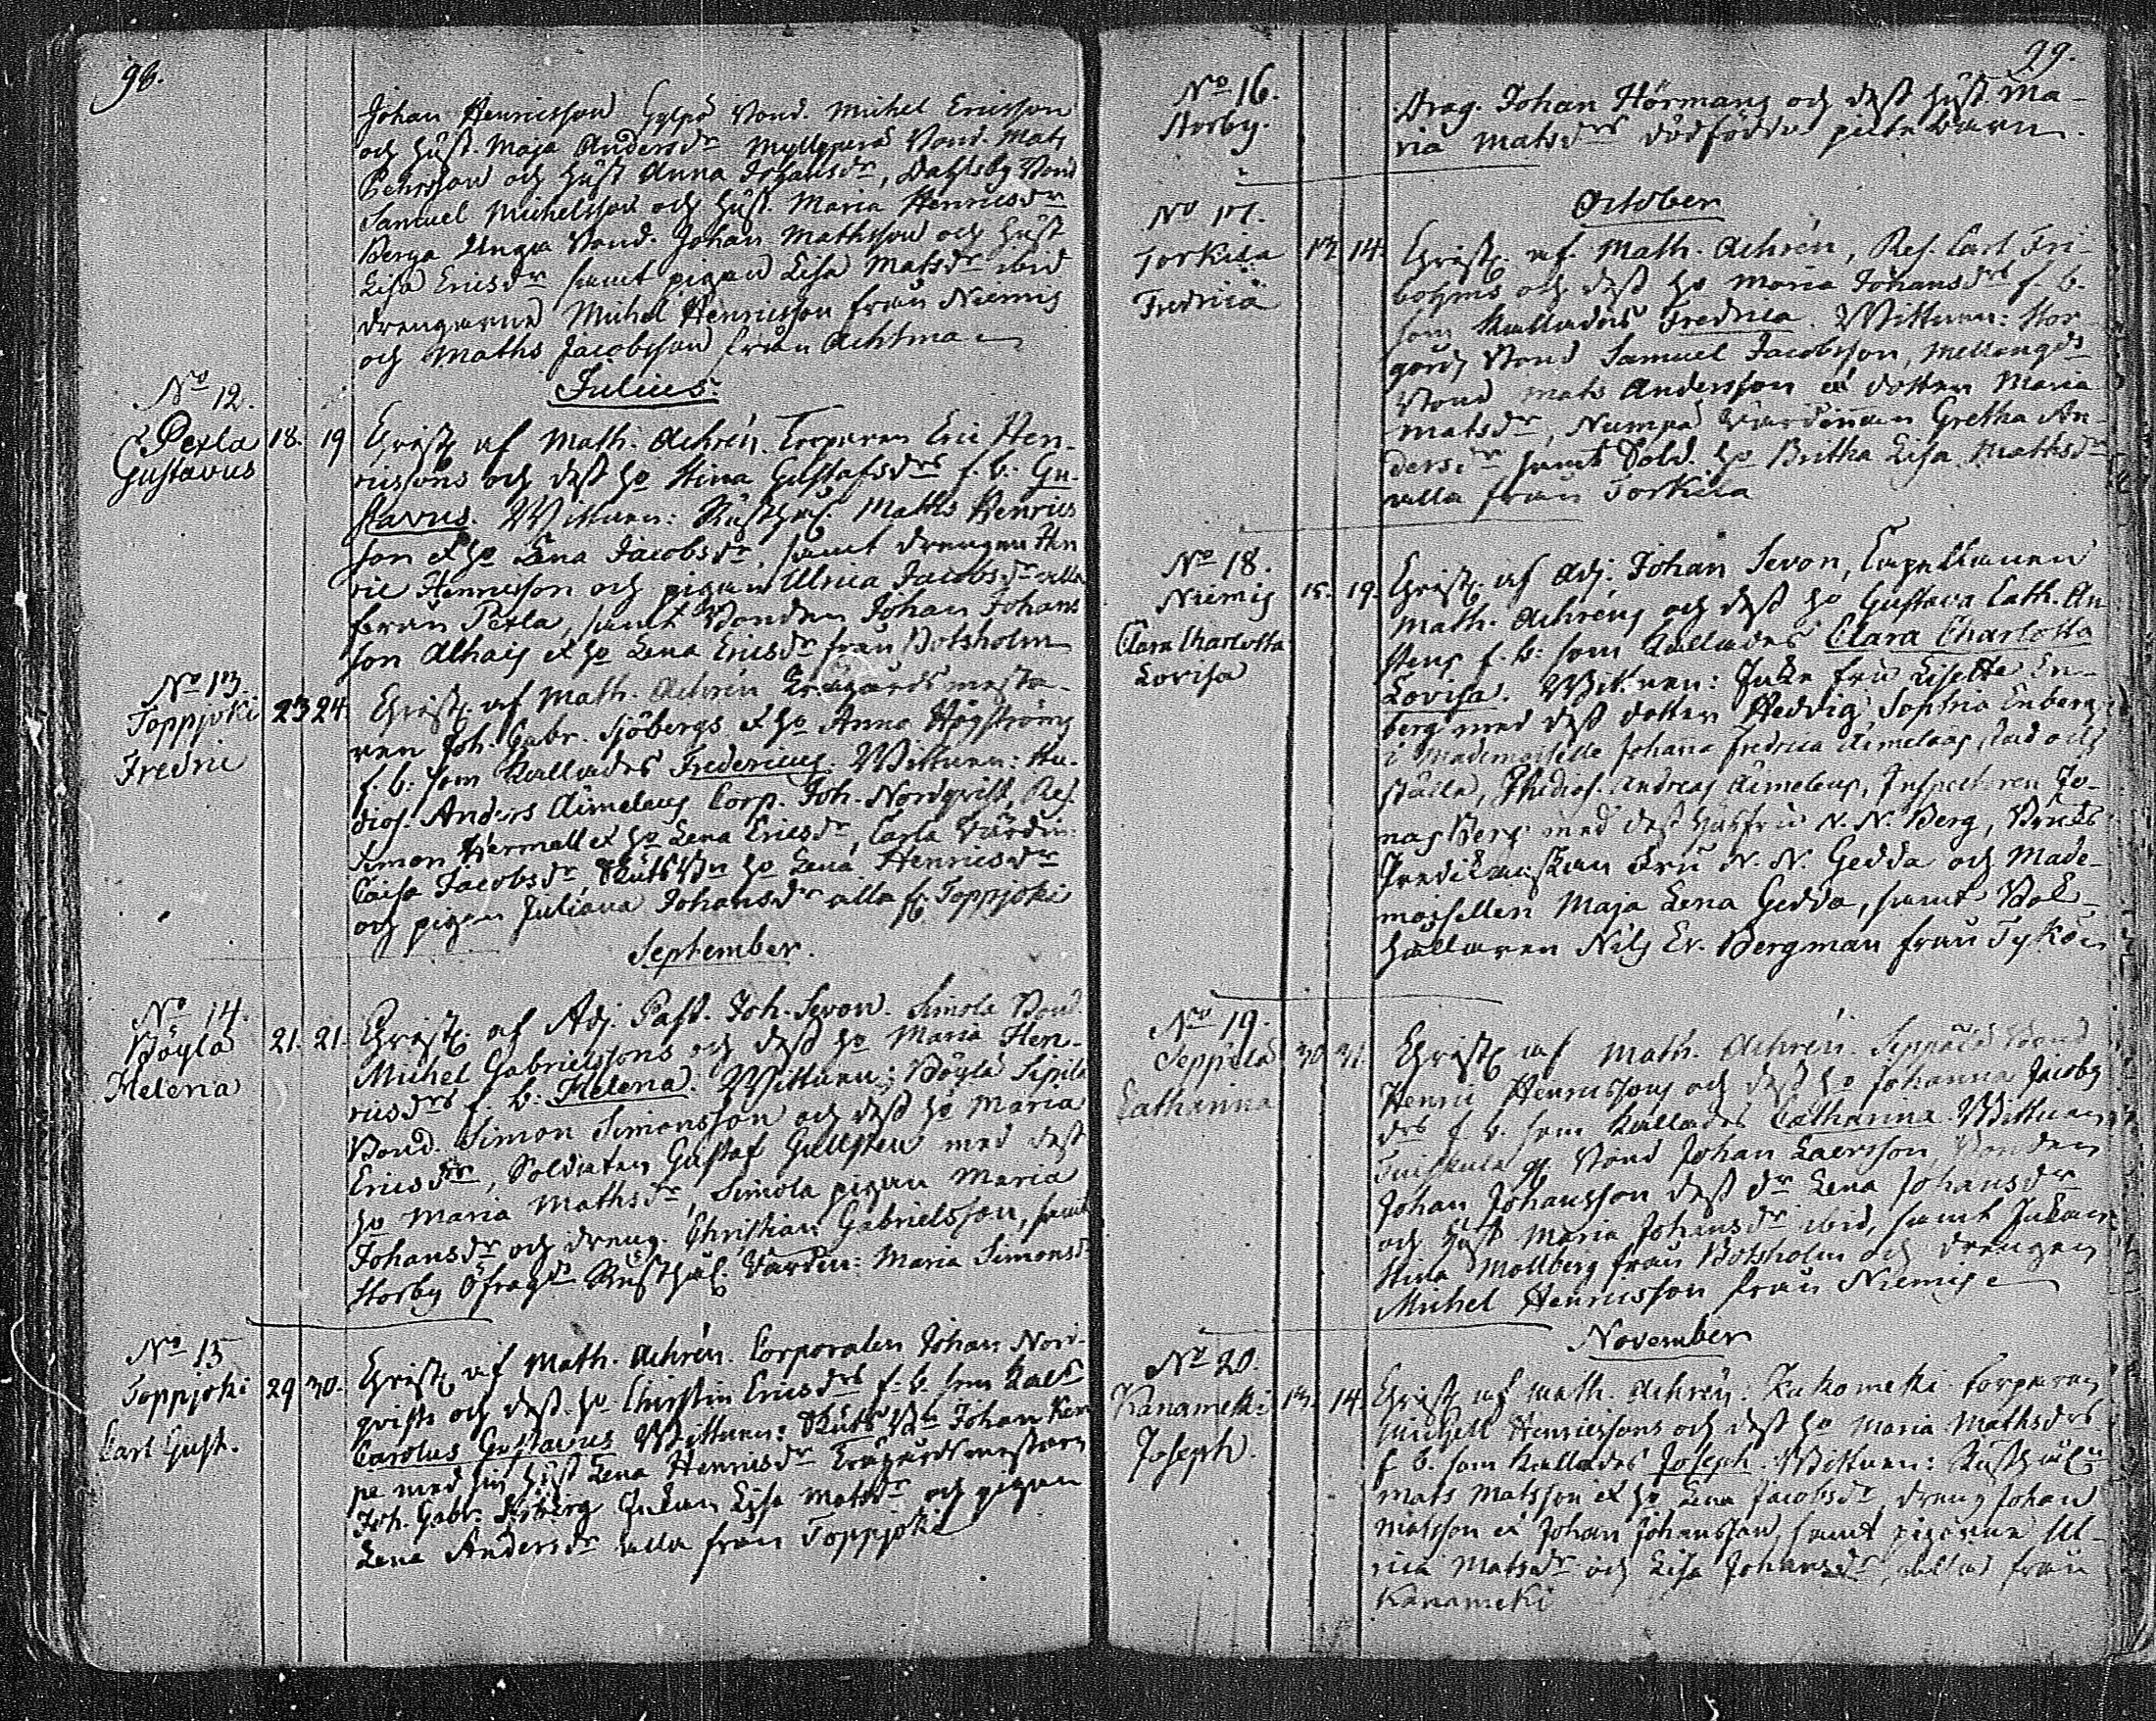 98.
Johan Henricsson Gylpö Bond. Michel Ericsson
och Hust. Maja Andersdr Myllyperä Bond. Mats
Pehrsson och Hust Anna Johansdr, Dahlsby Bond
Samuel Michelsson och Hust. Maria Henricsdr
Berga Unga Bond. Johan Mathsson och Hust
Lisa Ericsdr samt pigan Lisa Matsdr ibid
drengarne Michel Henricsson från Niemis
och Maths Jacobsson från Achtma
Julius.
No 12.
Pexla
Gustavus
18. 19
Christ. af Math. Achrén. Torparen Eric Hen-
ricssons och dess ho Stina Gustafsdrs f. b. Gu-
stavus. Wittnen: Rusthål. Maths Henrics
son et ho Lena Jacobsdr, samt drengen Hen
ric Henricsson och pigan Ulrica Jacobsdr alla
från Pexla, samt Bonden Johan Johans
son Alhais et ho Lena Ericsdr från Botsholm
No 13.
Toppjoki
Fredric
23 24.
Christ. af Math. Achrén Trägårdsmesta-
ren Joh. Gabr. Sjöbergs et ho Anna Högströms
f. b. som kallades Fredericus. Wittnen: Stu-
dios. Anders Aimelæus Corp. Joh. Nordqvist, Ref.
Simon Hermell et ho Lena Ericsdr, Carla Värdin:
Caisa Jacobsdr Skuts Bn ho Lena Henricsdr
och pigan Juliana Johansdr alla fr. Toppjoki
September.
No 14.
Böylä
Helena
21. 21.
Christ. af Adj. Past. Joh. Sevon. Simola Bond.
Michel Gabrielssons och dess ho Maria Hen-
ricsdrs f. b. Helena. Wittnen: Böylä Sipilä
Bond. Simon Simonsson och dess ho Maria
Ericsdr, Soldaten Gustaf Gullsten med dess
ho Maria Mathsdr, Simola pigan Maria
Johansdr och dreng. Christian Gabrielsson, samt
Storby Öfragds Rusthål. Värdin: Maria Simonsd
No 15
Toppjoki
Carl Gust.
29 30.
Christ. af Math. Achrén. Corporalen Johan Nord-
qvists och dess ho Christin Ericsdrs f. b. som kals
Carolus Gustavus Wittnen: Skuts Bn Johan Kem
pe med sin Hust Lena Henricsdr Trägårdsmestarn
Joh. Gabr. Sjöberg Enkan Lisa Matsdr och pigan
Lena Andersdr alla från Toppjoki
99.
No 16.
Storby.
Drag. Johan Hörmans och dess Hust. Ma-
ria Matsdrs dödfödde pilte barn.
October
No 17.
Torkila
Fredrica
13 14.
Christ. af Math. Achrén, Ref. Carl Fri-
bohms och dess ho Maria Johansdrs f. b.
som kallades Fredrica. Wittnen: Stor
gårds Bond Samuel Jacobsson, Mellangds
Bond Mats Andersson et dotter Maria
Matsdr, Numpa Värdinnan Gretha An-
dersdr samt Sold. ho Britha Lisa Mathsdr
alla från Torkila
No 18.
Niemis
Clara Charlotta
Lovisa
15. 19.
Christ. af Adj: Johan Sevon, Capellanen
Math. Achréns och dess ho Gustava Cath. An
stens f. b: som kallades Clara Charlotta
Lovisa. Wittnen: Enke fru Lisette En-
berg med dess dotter Hedvig Sophia Enberg
i Mademoiselle Johanna Fredrica Aimelæus stad och
ställe, Studios. Andreas Aimelæus, Inspectoren Jo-
nas Berg med dess Husfru N. N. Berg, Bruks
Predikanskan Fru N. N. Gedda och Made-
moisellen Maja Lena Gedda, samt Bok-
hållaren Nils Er. Bergman från Tykö
No 19.
Seppälä
Catharina
30 31.
Christ. af Math. Achrén. Seppälä Bond
Henric Henricssons och dess ho Johanna Jacobs
drs f. b. som kallades Catharina. Wittnen
Johan Johansson dess dr Lena Johansdr
och Hust Maria Johansdr ibid, samt Enkan
Stina Mollberg från Botsholm och drengen
Michel Henricsson från Niemis
November
No 20.
Kanameki
Joseph.
13. 14.
Christ. af Math. Achrén. Kukomeki torparen
Michell Henricssons och dess ho Maria Mathsdrs
f. b. som kallades Joseph. Wittnen: Rusthål
Mats Matsson et ho Lena Jacobsdr, dreng Johan
Matsson et Johan Johansson, samt pigorna Ul-
rica Matsdr och Lisa Johansdr, alla från
Kanameki